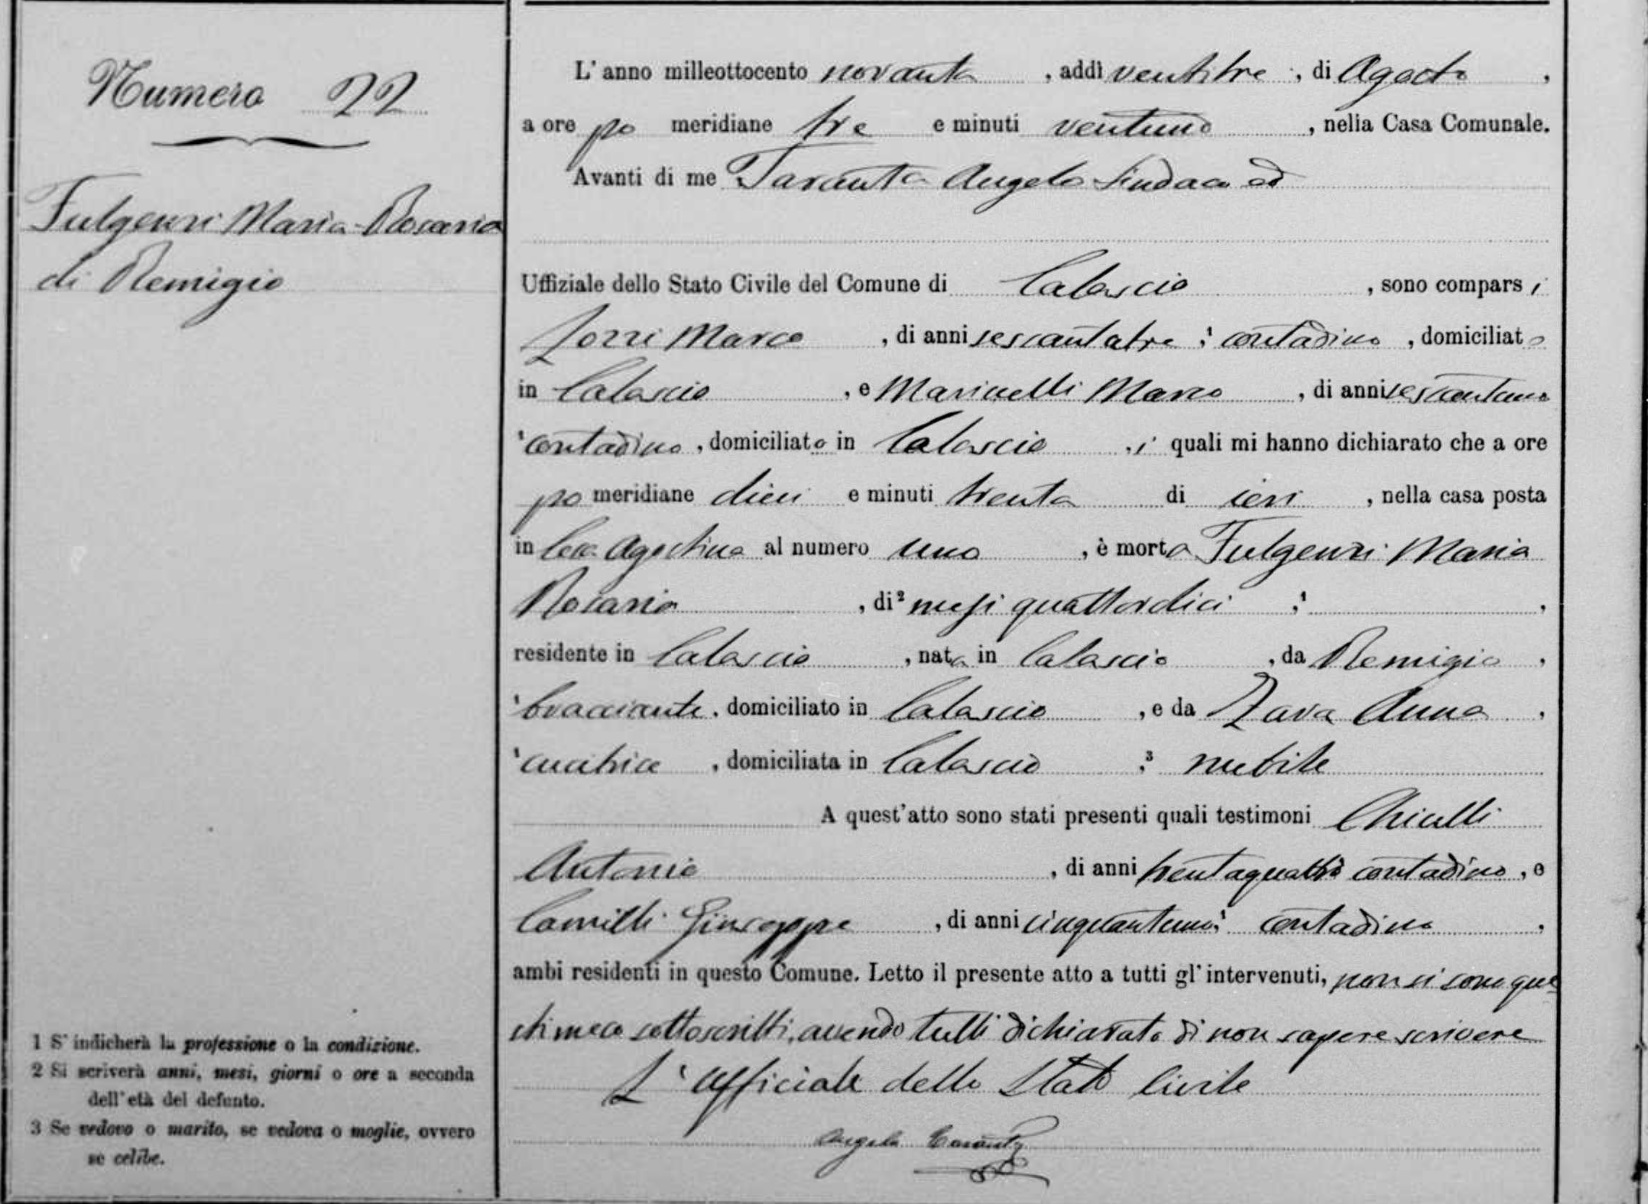 Numero 22
Fulgenzi Maria Rosaria
di Remigio
L' anno milleottocento novanta, addì ventitre, di Agosto,
a ore po meridiane tre e minuti ventuno, nella Casa Comunale.
Avanti di me Taranta Angelo Sindaco ed
Uffiziale dello Stato Civile del Comune di Calascio, sono compars i
Zozzi Marco, di anni sessantatre, ¹ contadino, domiciliato
in Calascio, e Marinelli Marco, di anni sessantuno
¹ contadino, domiciliato in Calascio, i quali mi hanno dichiarato che a ore
po meridiane dieci e minuti trenta di ieri, nella casa posta
in Agostino al numero uno, è morta Fulgenzi Maria
Rosaria, di ² mesi quattordici, ¹ ,
residente in Calascio, nata in Calascio, da Remigio,
¹ bracciante, domiciliato in Calascio, e da Zara Anna,
¹ cucitrice, domiciliata in Calascio, ³ nubile
A quest'atto sono stati presenti quali testimoni Chiulli
Antonio, di anni trentaquattro contadino, e
Camilli Giuseppe, di anni cinquantuno, ¹ contadino,
ambi residenti in questo Comune. Letto il presente atto a tutti gl' intervenuti, non si sono que
sti meco sottoscritti, avendo tutti dichiarato di non sapere scrivere
L' Officiale dello Stato Civile
Angelo Taranta
1 S' indicherà la professione o la condizione.
2 Si scriverà anni, mesi, giorni o ore a seconda
dell' età del defunto.
3 Se vedovo o marito, se vedova o moglie, ovvero
se celibe.